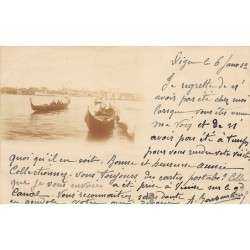 6 Janv 02
Je regrette de n'
avoir pas été chez moi
lorsque vous êtes
ma voir et de n'
avoir pas it à temps
pour vous rendre votre visite
Quoi qu'il en soit. Bonne et heureuse année
Collectionnez-vous toujours des cartes postales? Celle
que je vous envoie a été prise à Venise sur le gd
Canal. Vous reconnaîtrez
votre